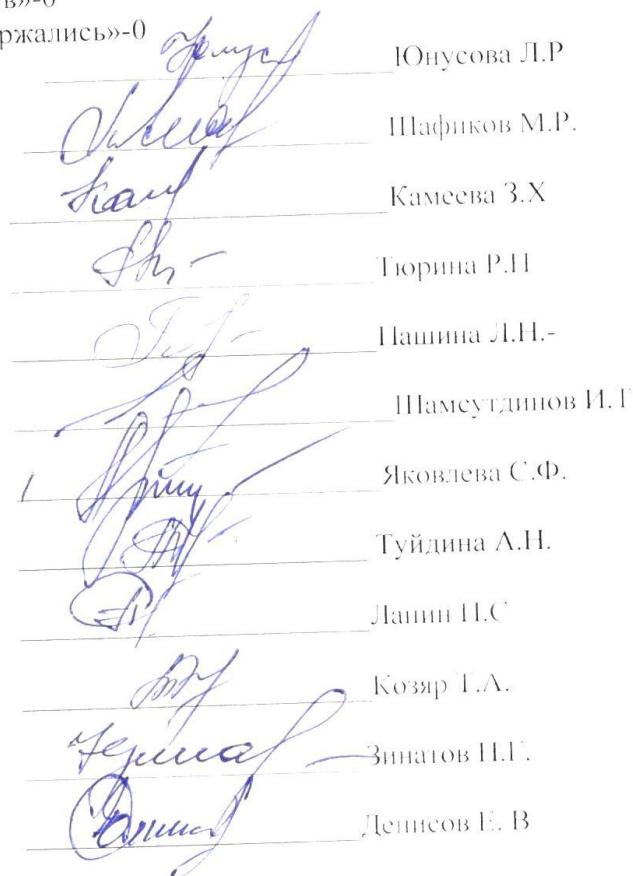 в»-0
ржались»-0
Юнусова Л.Р
Шафиков М.Р.
Камеева З.Х
Тюрина Р.Н
Пашина Л.Н.-
Шамсутдинов И.Т
Яковлева С.Ф.
Туйдина А.Н.
Лапин П.С
Козяр Т.А.
Зинатов Н.Г.
Денисов Е. В